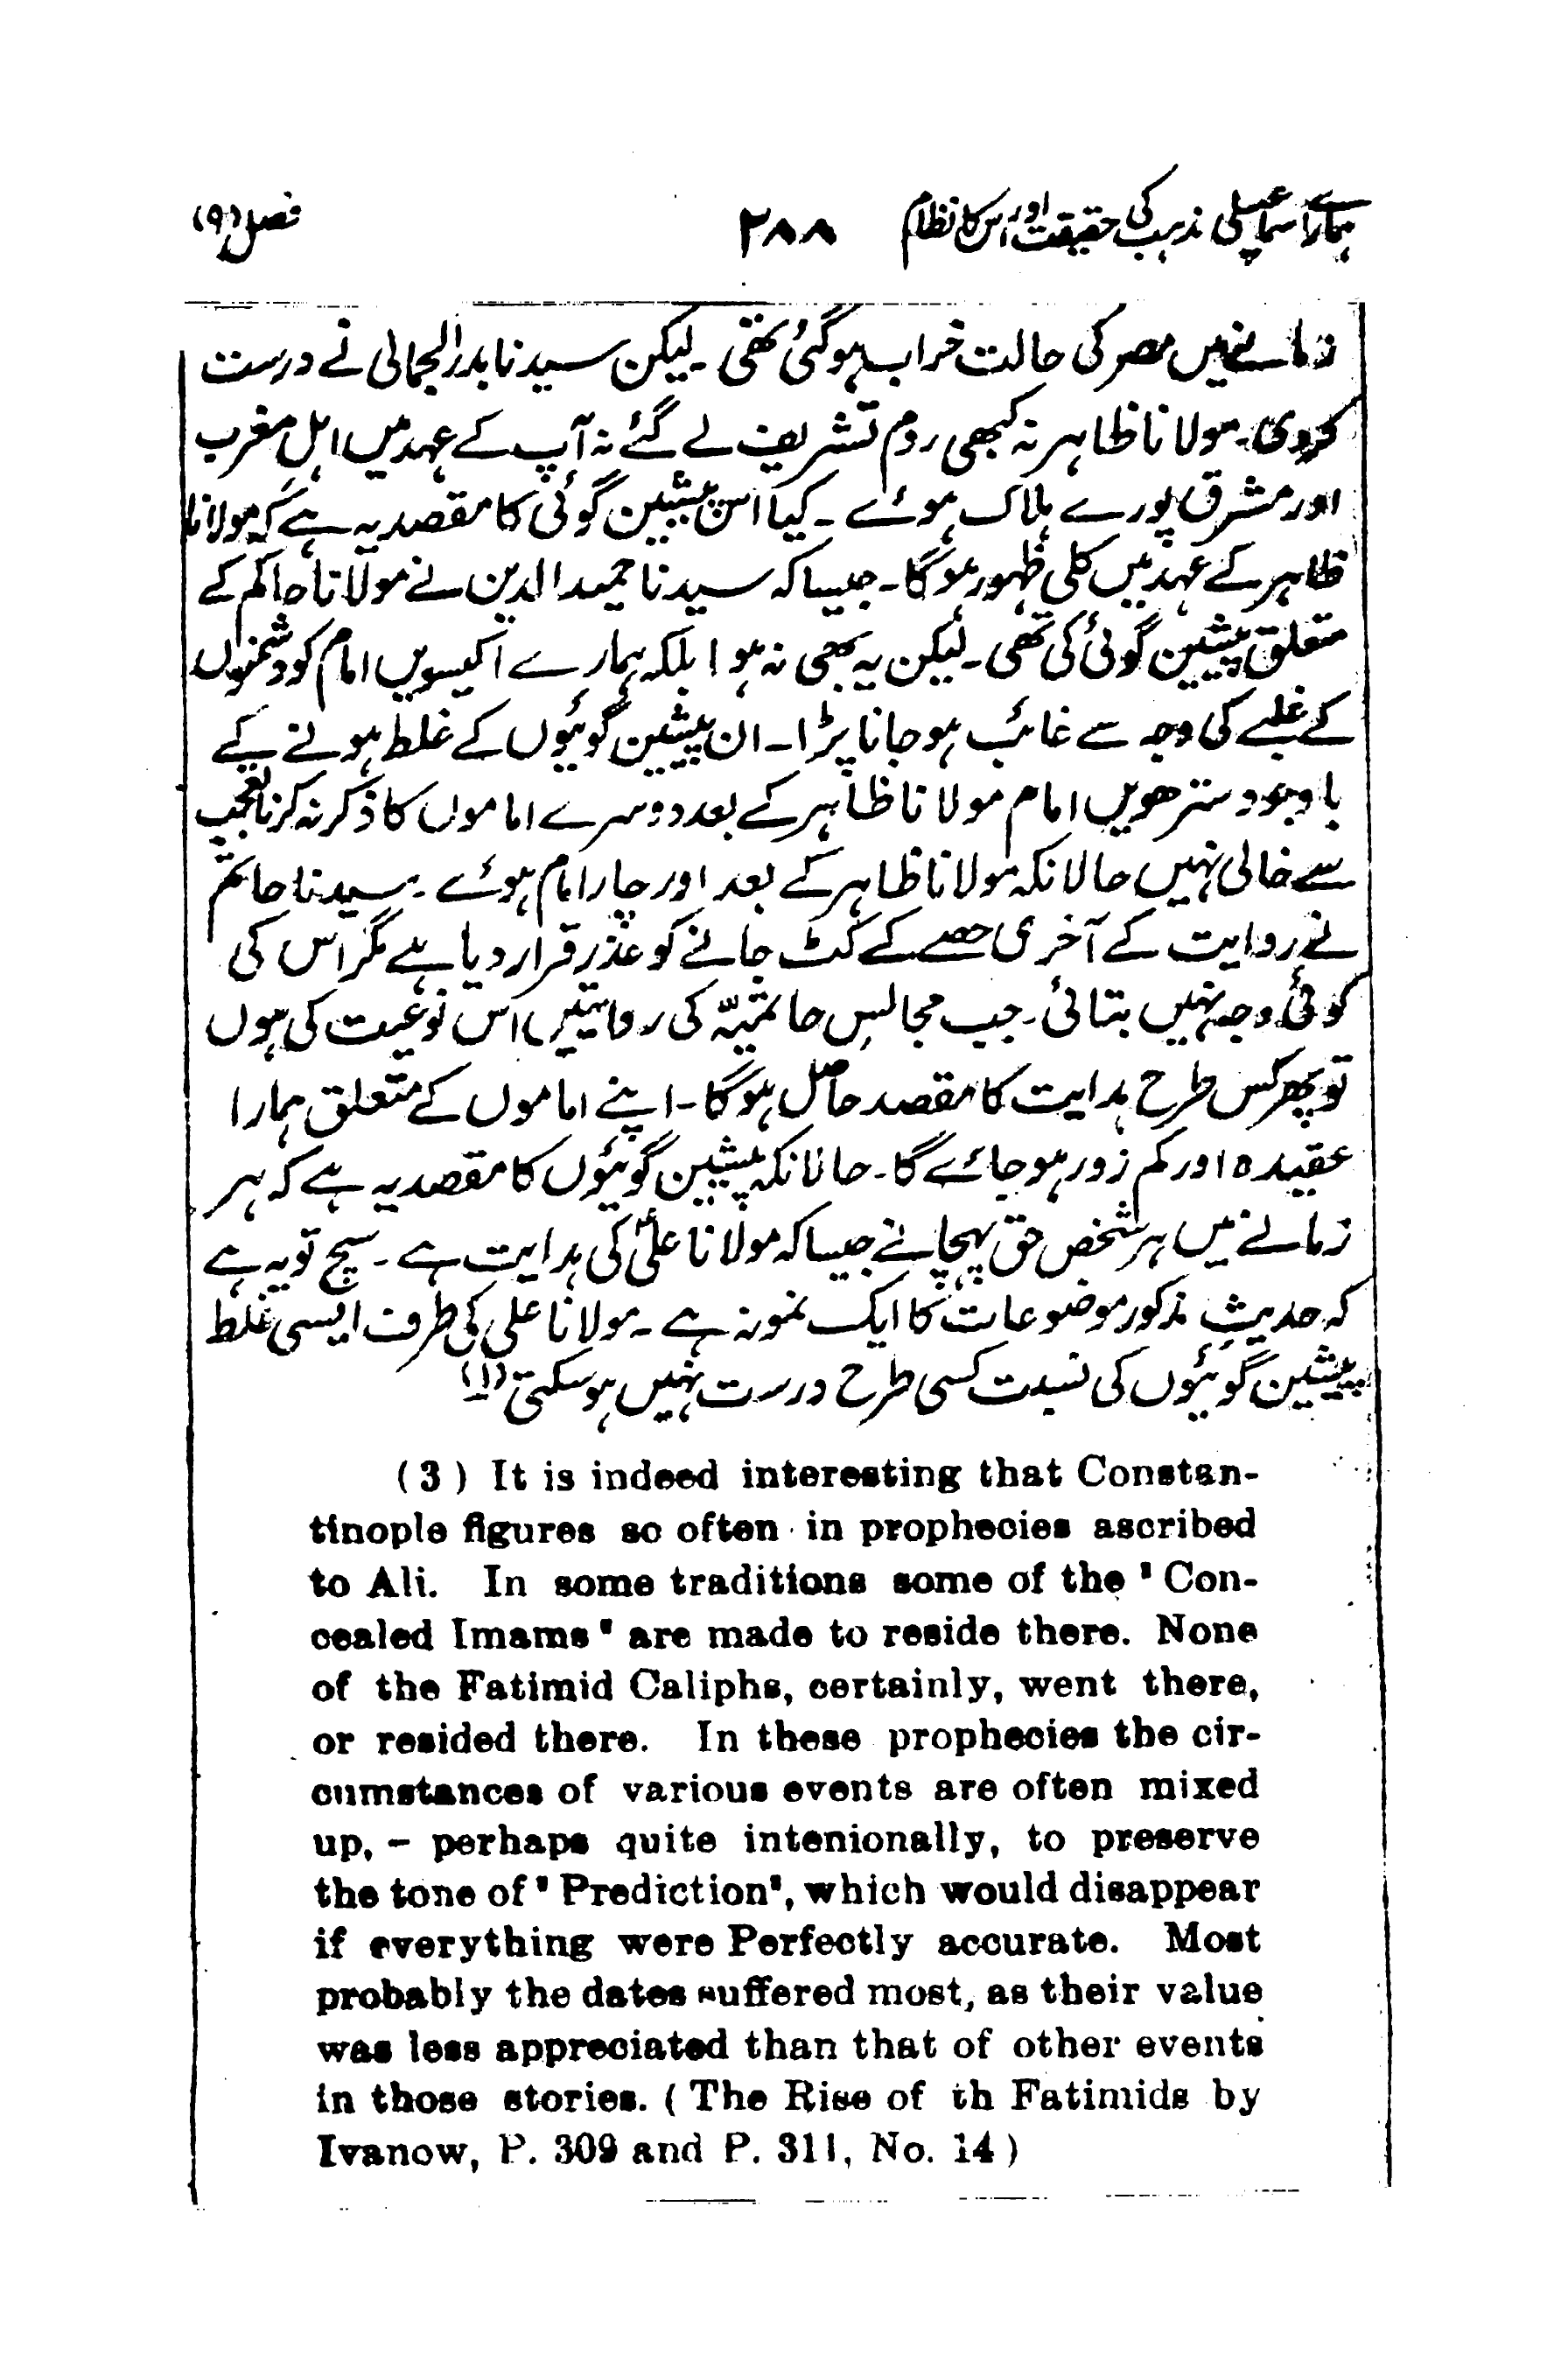 ہمارے اسماعیلی مذہب کی حقیقت اور اس کا نظام ۲۸۸ فصل (۹)
زمانے میں مصر کی حالت خراب ہو گئی تھی ۔ لیکن سیدنا بدر الجمالی نے درست
کر دی ۔ مولانا ظاہر نہ کبھی روم تشریف لے گئے نہ آپ کے عہد میں اہلِ مغرب
اور مشرق پورے ہلاک ہوئے ۔ کیا اس پیشین گوئی کا مقصد یہ ہے کہ مولانا
ظاہر کے عہد میں کلی ظہور ہو گا ۔ جیسا کہ سیدنا حمید الدین نے مولانا حاکم کے
متعلق پیشین گوئی کی تھی ۔ لیکن یہ بھی نہ ہوا بلکہ ہمارے اکیسویں امام کو دشمنوں
کے غلبے کی وجہ سے غائب ہو جانا پڑا ۔ ان پیشین گوئیوں کے غلط ہونے کے
باوجود سترھویں امام مولانا ظاہر کے بعد دوسرے اماموں کا ذکر نہ کرنا تعجب
سے خالی نہیں حالانکہ مولانا ظاہر کے بعد اور چار امام ہوئے ۔ سیدنا حاتم
نے روایت کے آخری حصے کے کٹ جانے کو عذر قرار دیا ہے مگر اس کی
کوئی وجہ نہیں بتائی ۔ جب مجالسِ حاتمیّہ کی روایتیں اس نوعیت کی ہوں
تو پھر کس طرح ہدایت کا مقصد حاصل ہو گا ۔ اپنے اماموں کے متعلق ہمارا
عقیدہ اور کم زور ہو جائے گا ۔ حالانکہ پیشین گوئیوں کا مقصد یہ ہے کہ ہر
زمانے میں ہر شخص حق پہچانے جیسا کہ مولانا علیؑ کی ہدایت ہے ۔ سچ تو یہ ہے
کہ حدیثِ مذکور موضوعات کا ایک نمونہ ہے ۔ مولانا علی کی طرف ایسی غلط
پیشین گوئیوں کی نسبت کسی طرح درست نہیں ہو سکتی (۱)
(3) It is indeed interesting that Constan-
tinople figures so often in prophecies ascribed
to Ali. In some traditions some of the "Con-
cealed Imams" are made to reside there. None
of the Fatimid Caliphs, certainly, went there,
or resided there. In these prophecies the cir-
cumstances of various events are often mixed
up, – perhaps quite intenionally, to preserve
the tone of "Prediction", which would disappear
if everything were Perfectly accurate. Most
probably the dates suffered most, as their value
was less appreciated than that of other events
in those stories. (The Rise of th Fatimids by
Ivanow, P. 309 and P. 311, No. 14)